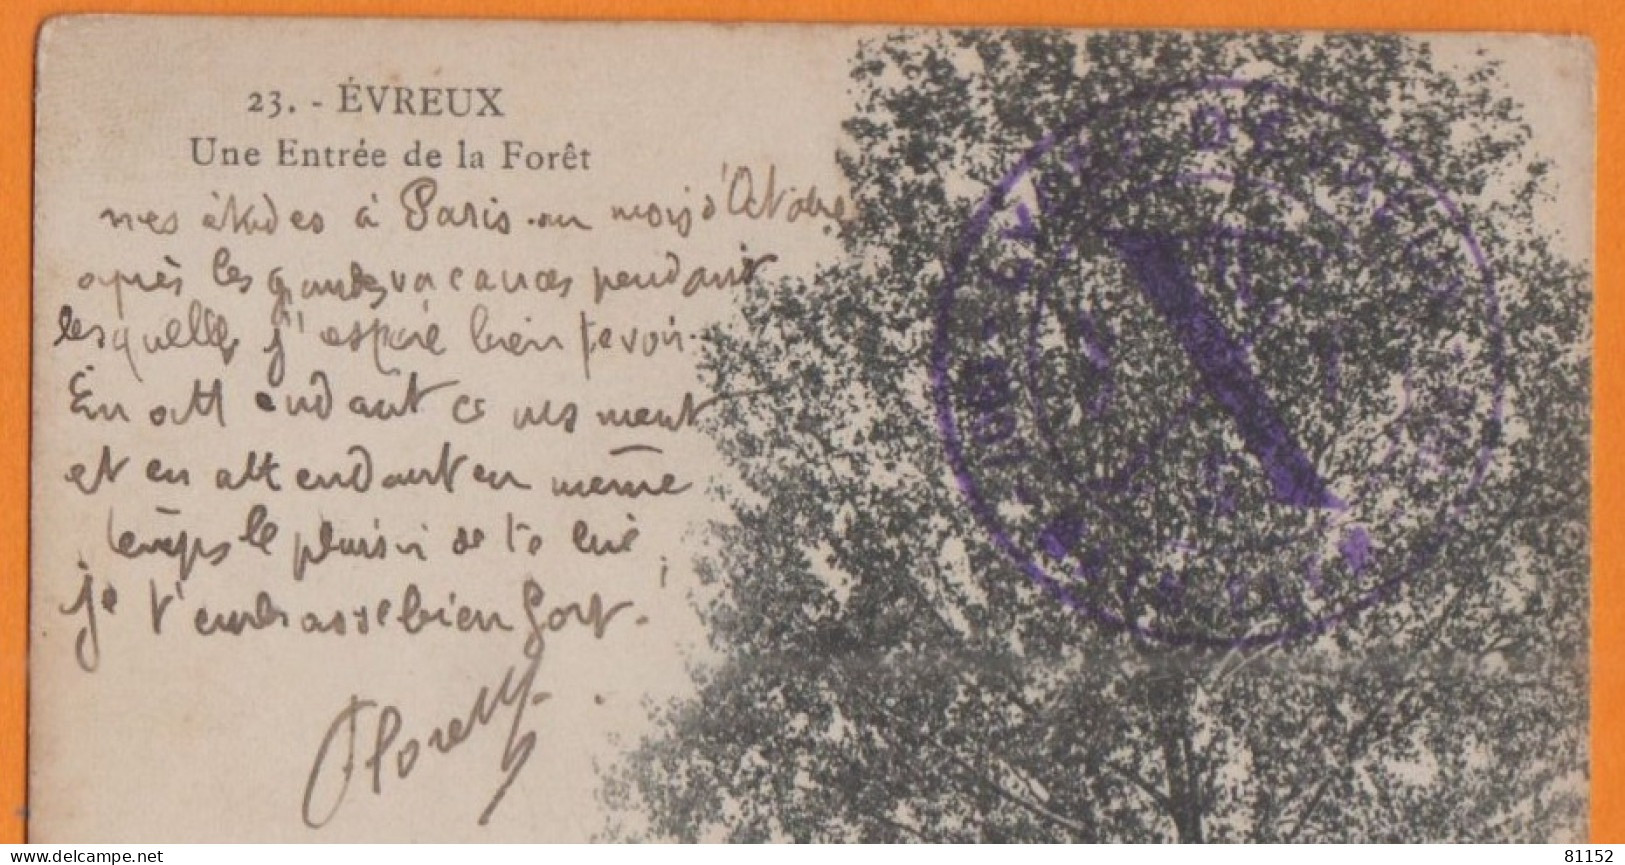 23. - ÉVREUX
Une Entrée de la Forêt
mes études à Paris au mois d'Octobre
après les grandes vacances pendant
lesquelles j'espère bien te voir.
En attendant ce moment
et en attendant en même
temps le plaisir de te lire,
je t'embrasse bien fort.
delcampe.net
81152